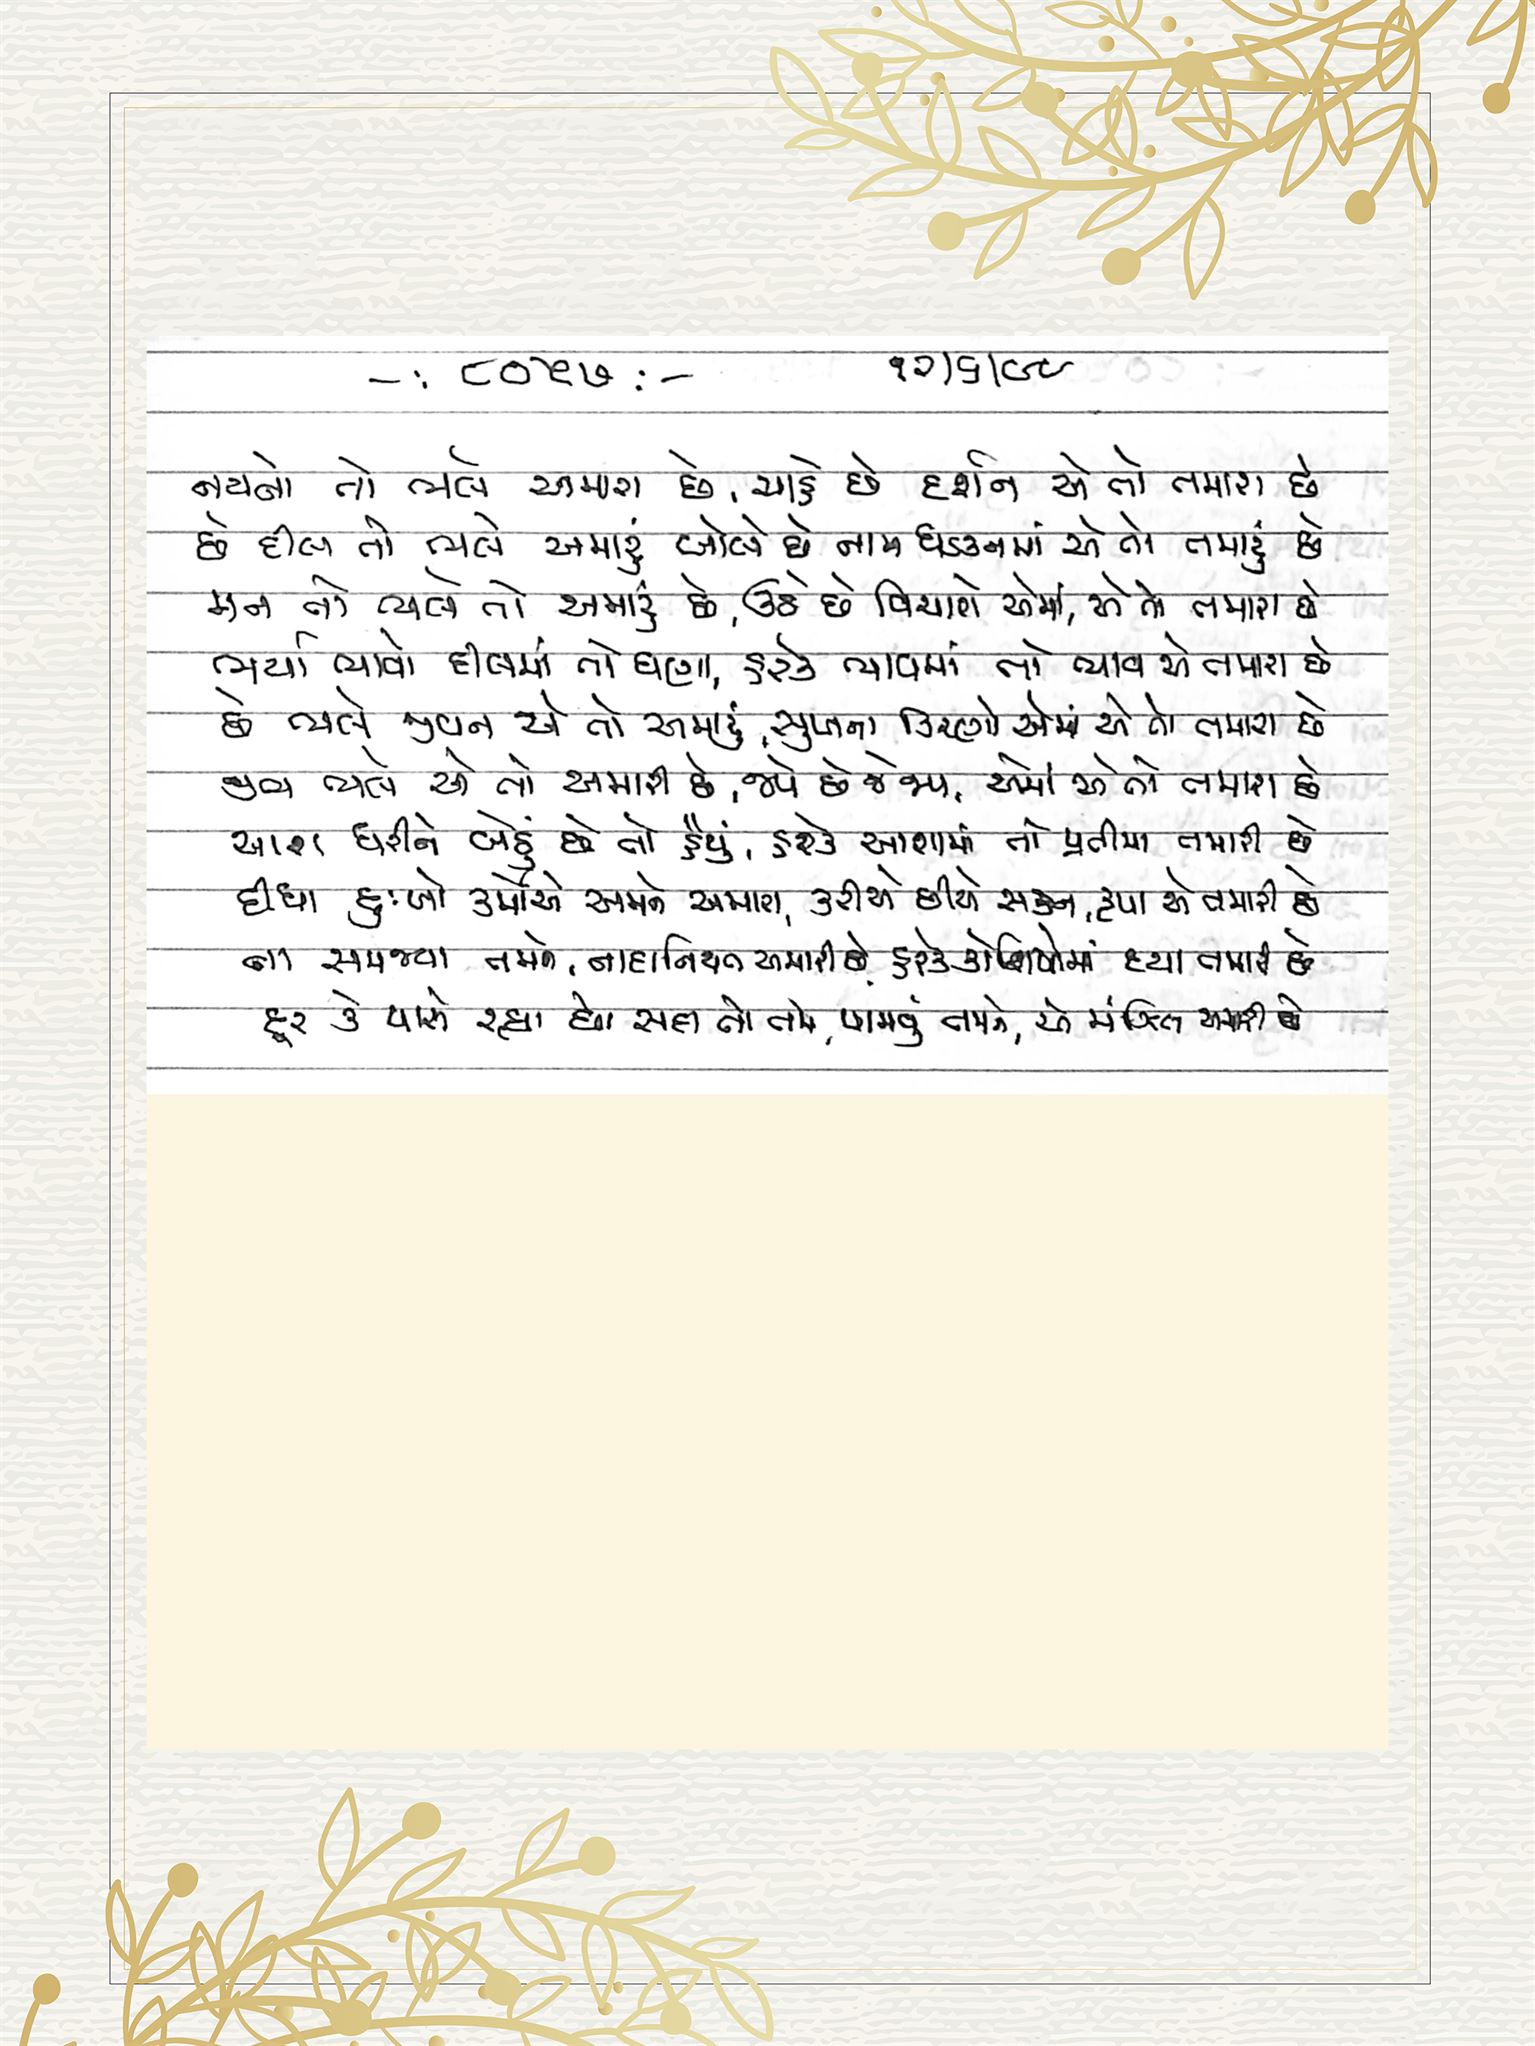 -: ૮૦૫૭ :- ૧૨/૬/૯૯
નયનો તો ભલે અમારા છે, ચાહે છે દર્શન એ તો તમારા છે
છે દીલ તો ભલે અમારું બોલે છે નામ ધડકનમાં એ તો તમારું છે
મન તો ભલે તો અમારું છે, ઉઠે છે વિચારો એમાં, એ તો તમારા છે
ભર્યા ભાવો દીલમાં તો ઘણા, હરેક ભાવમાં તો ભાવ એ તમારા છે
છે ભલે જીવન એ તો અમારું, સુખના કિરણો એમાં એ તો તમારા છે
જીભ ભલે એ તો અમારી છે, જપે છે જે જાપ, એમાં એ તો તમારા છે
આશ ધરીને બેઠું છે તો હૈયું, હરેક આશામાં તો પ્રતીમા તમારી છે
દીધા દુઃખો કર્મોએ અમને અમારા, કરીએ છીએ સહન, કૃપા એ તમારી છે
ના સમજવા તમને, નાદાનિયત અમારી છે, હરેક કોશિષોમાં દયા તમારી છે
દૂર કે પાસે રહ્યા છો સદા તો તમે, પામવું તમને, એ મંઝિલ અમારી છે